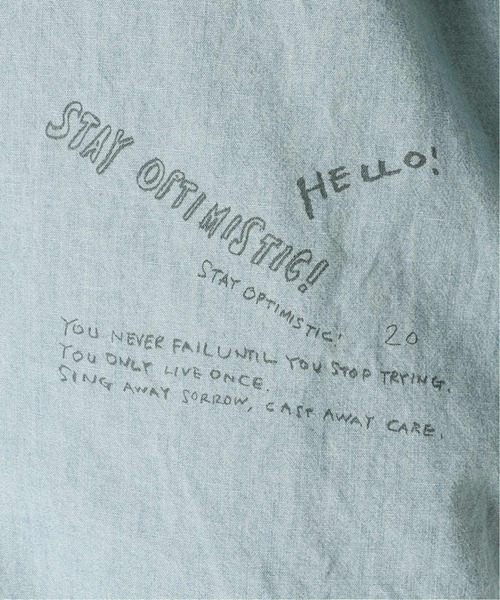 STAY OPTIMISTIC!
HELLO!
STAY OPTIMISTIC!
20
YOU NEVER FAIL UNTIL YOU STOP TRYING.
YOU ONLY LIVE ONCE.
SING AWAY SORROW, CAST AWAY CARE.